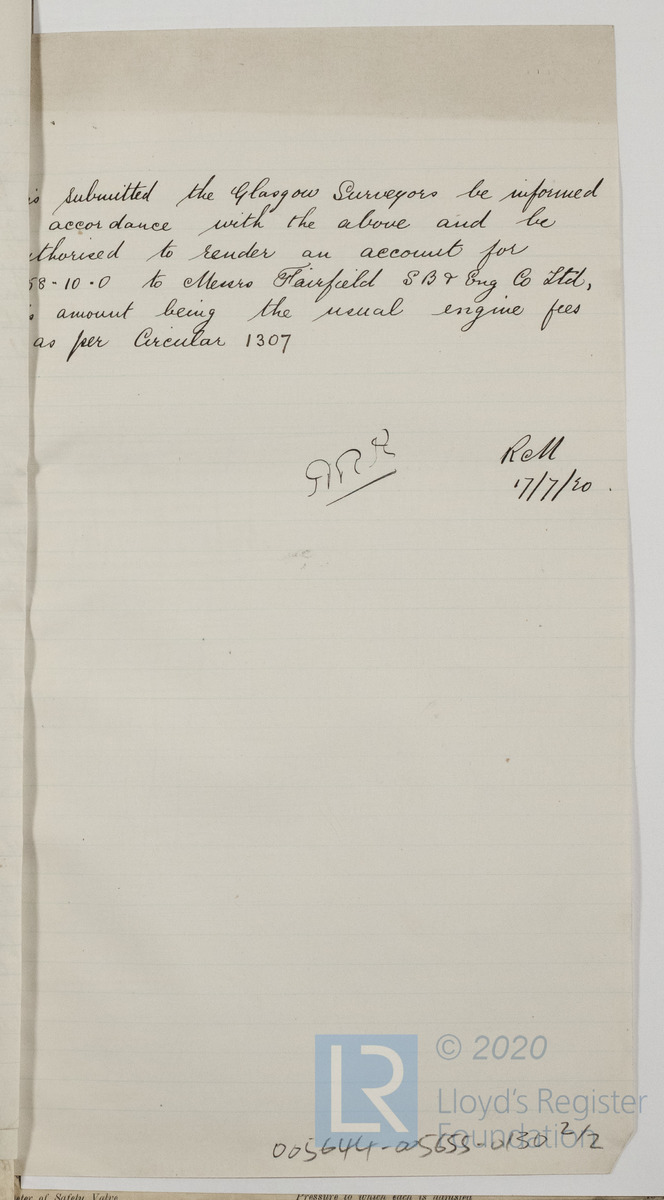 is submitted the Glasgow Surveyors be informed
accordance with the above and be
uthorised to render an account for
58-10-0 to Messrs Fairfield S B & Eng Co Ltd,
s amount being the usual engine fees
as per Circular 1307
RcM
17/7/20.
© 2020
LR
Lloyd's Register
Foundation
005644-005655-0130 2/2
eter of Safety Valve
Pressure to which each is adjusted